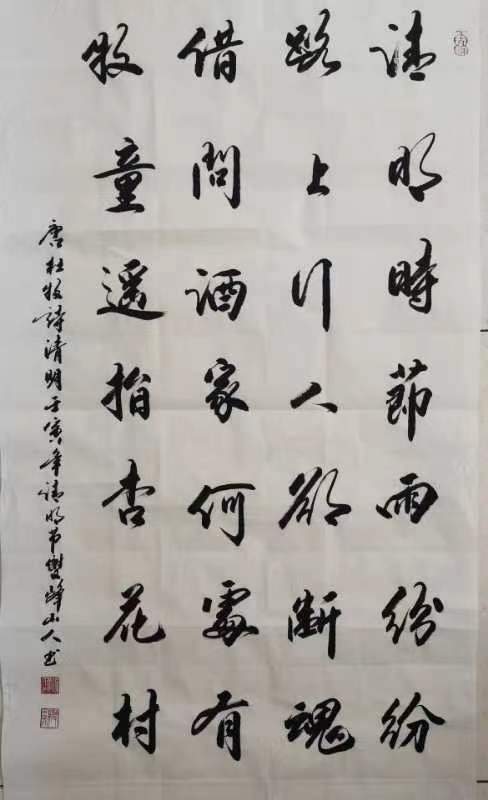 清明時節雨紛紛
路上行人欲斷魂
借問酒家何處有
牧童遥指杏花村
唐杜牧詩清明壬寅年清明節雙峰山人书